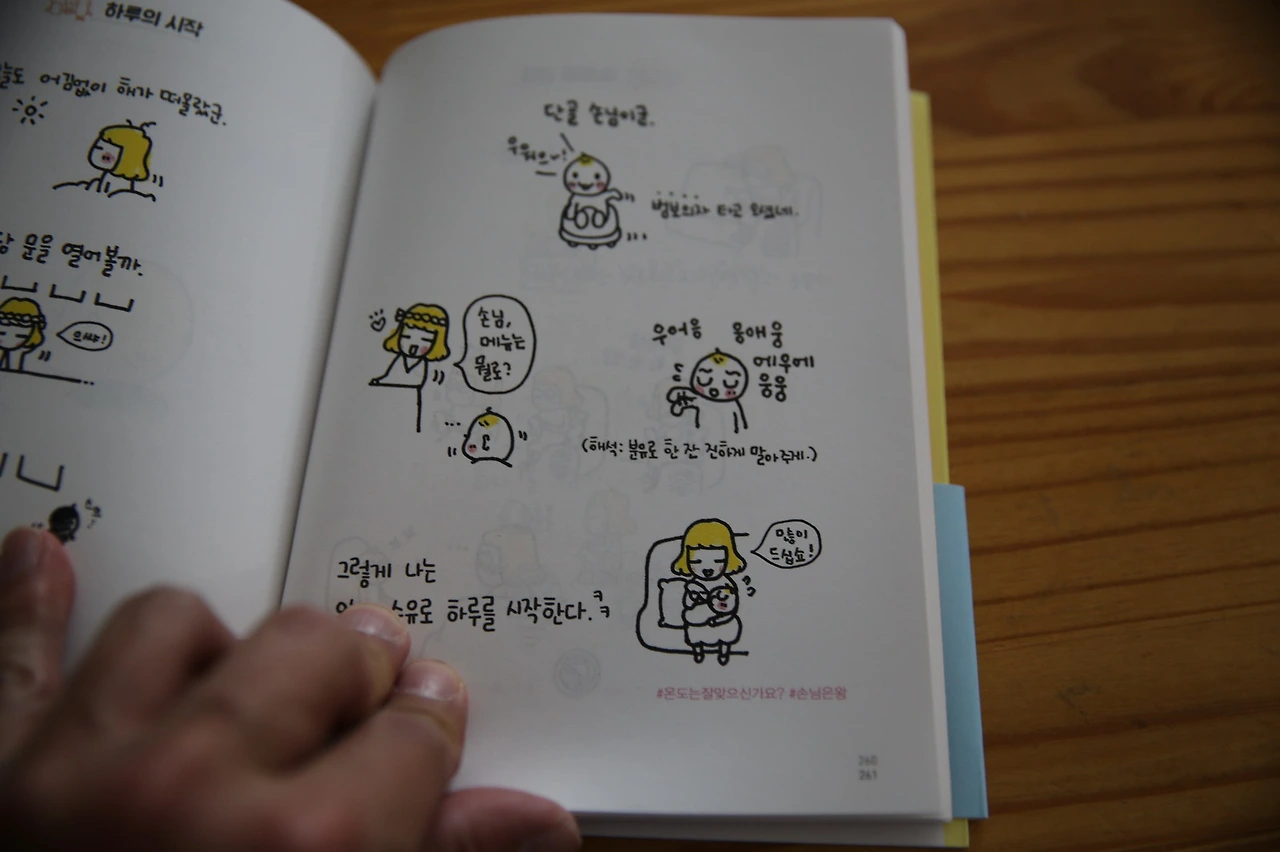 하루의 시작
어김없이 해가 떠올랐군.
문을 열어볼까.
으쌰!
단골 손님이군.
우워으~!
범보의자 타고 오셨네.
손님,
메뉴는
뭘로?
우어응 옹애웅
에우에
웅웅
(해석: 분유로 한 잔 진하게 말아주게.)
그렇게 나는
하루를 시작한다.ㅋㅋ
많이
드십쇼!
#온도는잘맞으신가요? #손님은왕
260
261